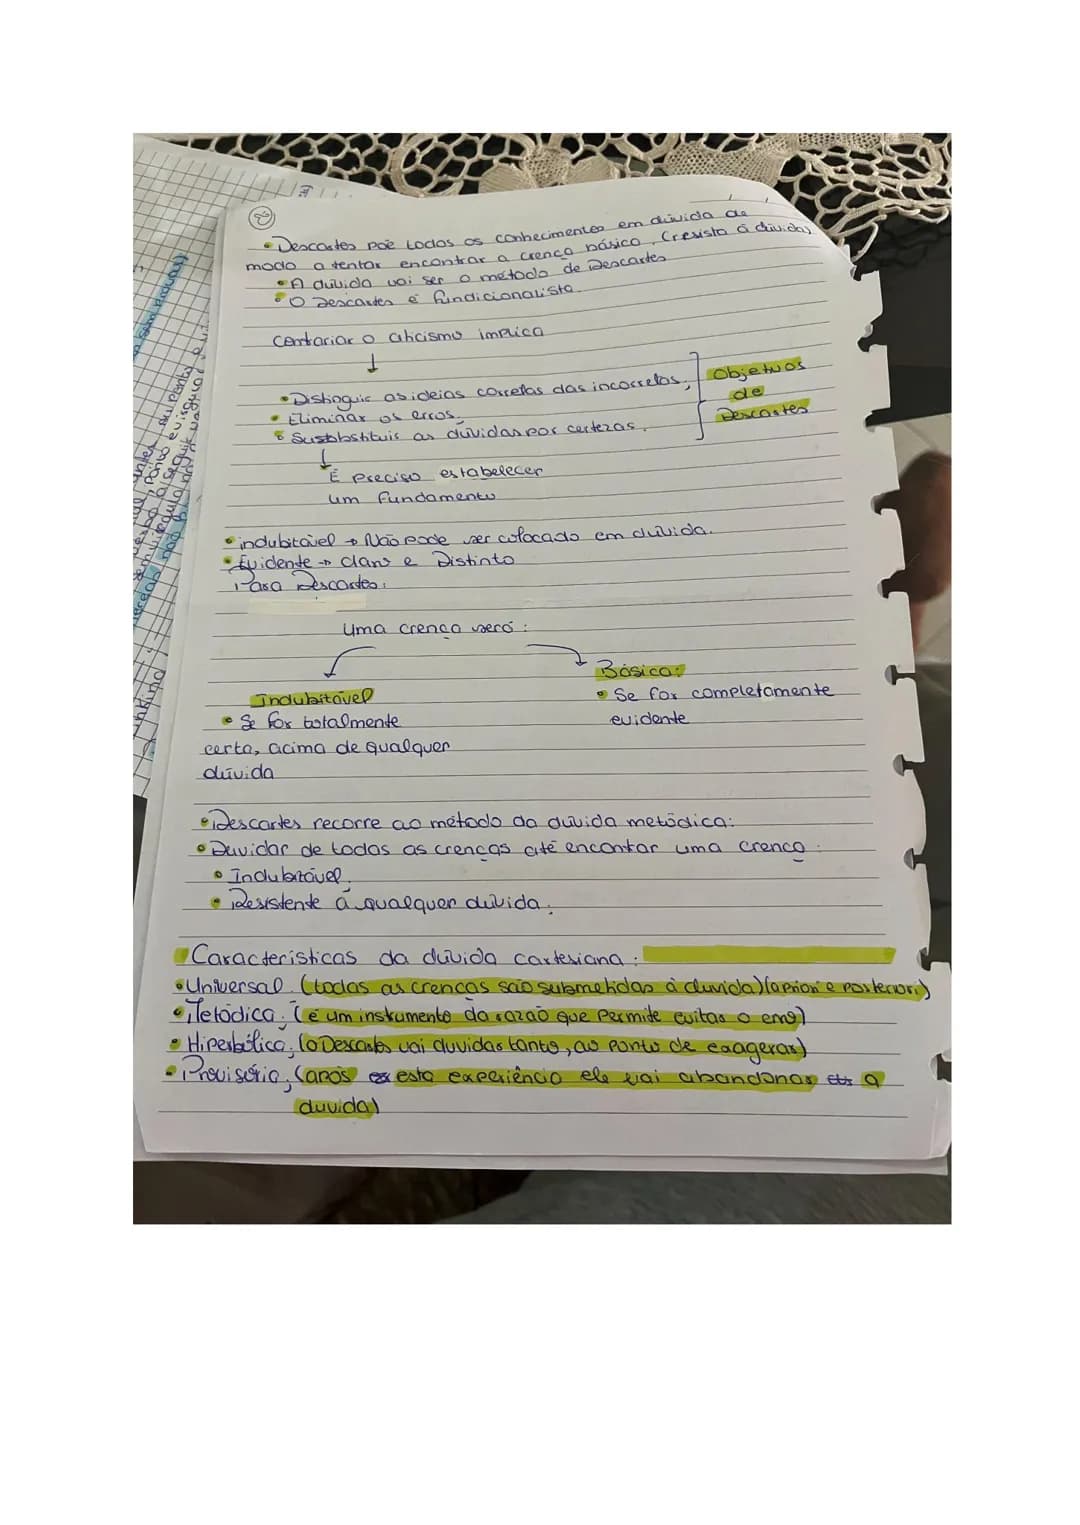 2
• Descartes põe todos os conhecimentos em dúvida de
modo a tentar encontrar a crença básico. (resista á dúvida)
• A dúvida vai ser o método de Descartes
• O Descartes é fundicionalista.
Contariar o cticismo implica
↓
• Distinguir as ideias corretas das incorretas,
• Eliminar os erros.
• Sustobstituir as dúvidas por certezas.
Objetivos
de
Descartes
↓
É preciso estabelecer
um fundamento
• indubitável → Não pode ser colocado em dúvida.
• Evidente → claro e Distinto
Para Descartes:
Uma crença será:
Indubitável
• Se for totalmente
certa, acima de qualquer
dúvida
Básica:
• Se for completamente
evidente
• Descartes recorre ao método da dúvida metódica:
• Duvidar de todas as crenças até encontar uma crença:
• Indubitável.
• Resistente á qualquer dúvida.
Características da dúvida cartesiana:
• Universal. (todas as crenças são submetidas à duvida) (a priori e posteriori)
• Metódica. (é um instrumento da razão que permite evitar o erro)
• Hiperbólica; (o Descartes vai duvidar tanto, ao ponto de exagerar)
• Provisória; (após esta experiência ele vai abandonar a
duvida)